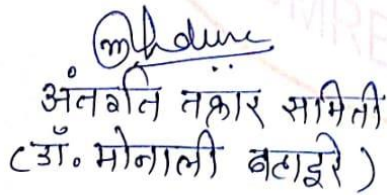 अंतर्गत तक्रार समिती
(डॉ. मोनाली बलाइरे)